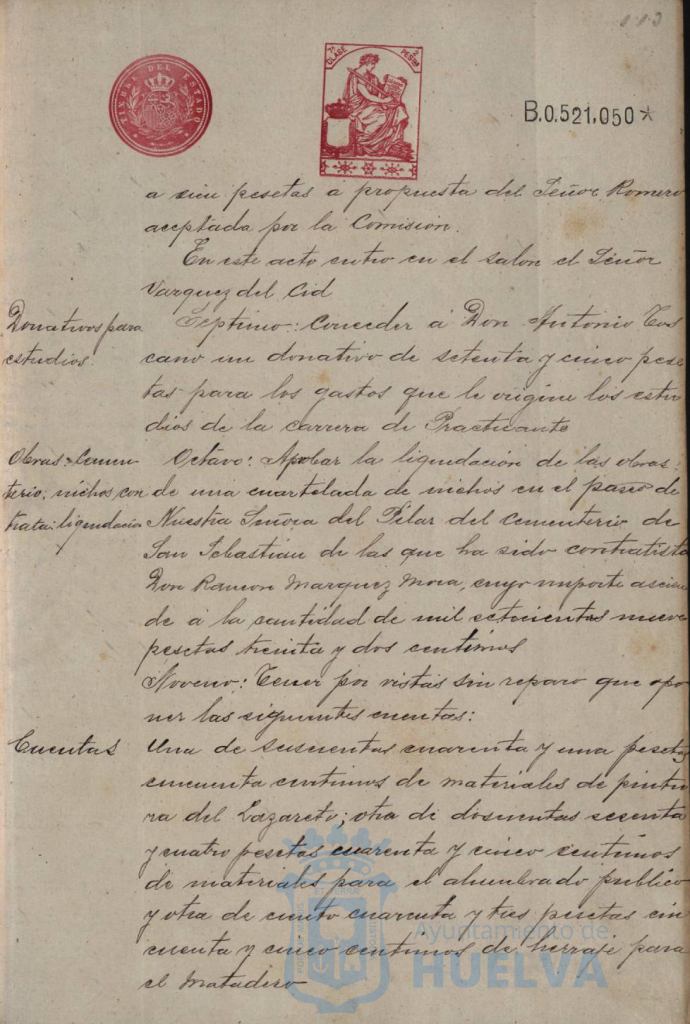 113
TIMBRE DEL ESTADO
7ª CLASE 2 PESETAS
B.0.521.050*
a cien pesetas a propuesta del Señor Romero
aceptada por la Comisión.
En este acto entro en el salon el Señor
Vazquez del Cid
Donativos para
estudios.
Septimo: Conceder á Don Antonio Tos
cano un donativo de setenta y cinco pese
tas para los gastos que le origine los estu
dios de la carrera de Practicante
Obras: Cemen
terio; nichos con
trata: liquidacion
Octavo: Aprobar la liquidación de las obras
de una cuartelada de nichos en el paseo de
Nuestra Señora del Pilar del Cementerio de
San Sebastian de las que ha sido contratista
Don Ramon Marquez Mora, cuyo importe ascien
de á la cantidad de mil setecientas nueve
pesetas treinta y dos centimos
Noveno: Tener por vistas sin reparo que opo
ner las siguientes cuentas:
Cuentas
Una de cuarenta y una pesetas
cincuenta centimos de materiales de pintu
ra del Lazareto; otra de doscientas sesenta
y cuatro pesetas cuarenta y cinco centimos
de materiales para el alumbrado publico
y otra de ciento cuarenta y tres pesetas cin
cuenta y cinco centimos de herraje para
el Matadero
Ayuntamiento de
HUELVA